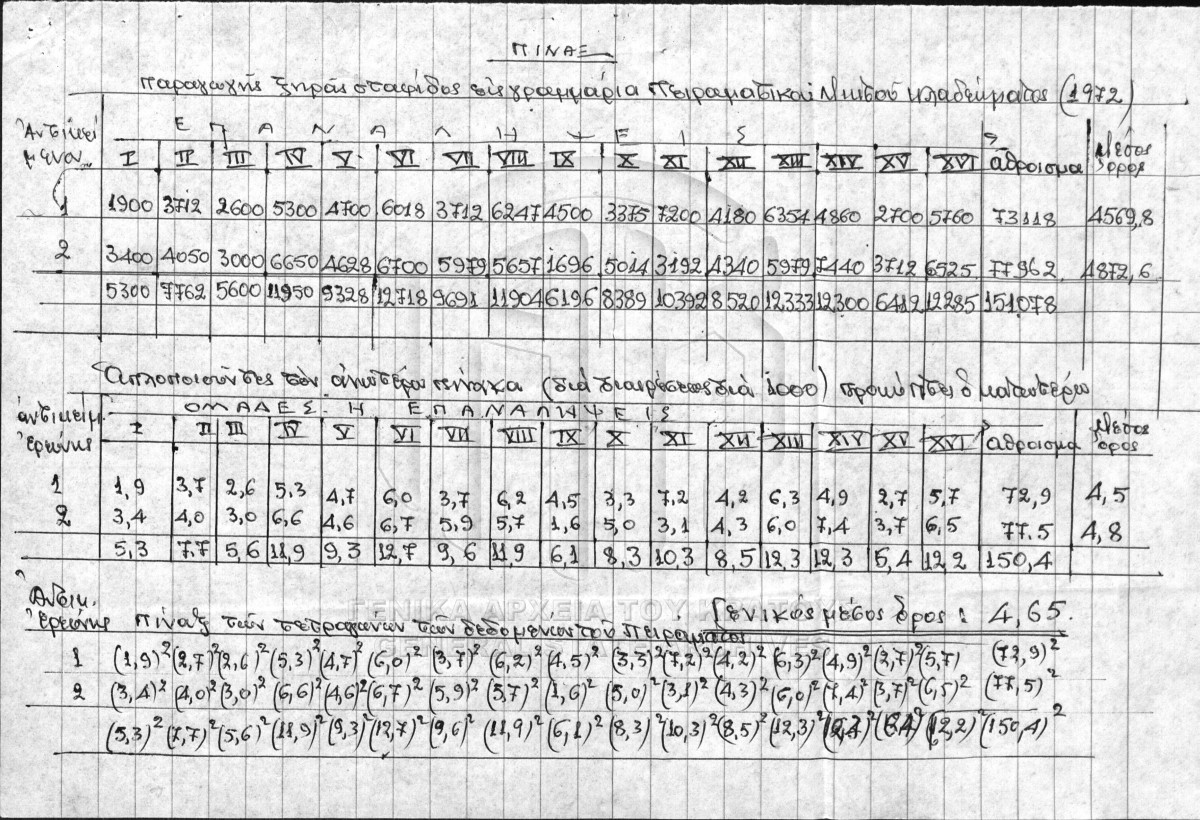 ΠΙΝΑΞ
Παραγωγῆς ξηρᾶς σταφίδος εἰς γραμμάρια Πειραματικοῦ Μικτοῦ κλαδεύματος (1972)
Ἀντικεί Ε Π Α Ν Α Λ Η Ψ Ε Ι Σ
μενα I II III IV V VI VII VIII IX X XI XII XIII XIV XV XVI ἄθροισμα Μέσος ὅρος
1 1900 3712 2600 5300 4700 6018 3712 6247 4500 3375 7200 4180 6354 4860 2700 5760 73118 4569,8
2 3400 4050 3000 6650 4628 6700 5979 5657 1696 5014 3192 4340 5979 7440 3712 6525 77962 4872,6
5300 7762 5600 11950 9328 12718 9691 11904 6196 8389 10392 8520 12333 12300 6412 12285 151078
Ἁπλοποιοῦντες τὸν ἀνωτέρω πίνακα (διὰ διαιρέσεως διὰ 1000) προκύπτει ὁ κατωτέρω
ἀντικείμ. ΟΜΑΔΕΣ Ἡ ΕΠΑΝΑΛΗΨΕΙΣ
ἐρεύνης I II III IV V VI VII VIII IX X XI XII XIII XIV XV XVI ἄθροισμα Μέσος ὅρος
1 1,9 3,7 2,6 5,3 4,7 6,0 3,7 6,2 4,5 3,3 7,2 4,2 6,3 4,9 2,7 5,7 72,9 4,5
2 3,4 4,0 3,0 6,6 4,6 6,7 5,9 5,7 1,6 5,0 3,1 4,3 6,0 7,4 3,7 6,5 77.5 4,8
5,3 7.7 5,6 11,9 9,3 12,7 9,6 11,9 6,1 8,3 10,3 8,5 12,3 12,3 5,4 12,2 150,4
Ἀντικ. Γενικὸς μέσος ὅρος: 4,65.
ἐρεύνης Πίναξ τῶν τετραγώνων τῶν δεδομένων τοῦ πειράματος
ΓΕΝΙΚΑ ΑΡΧΕΙΑ ΤΟΥ
1 (1,9)² (2,7)² (2,6)² (5,3)² (4,7)² (6,0)² (3,7)² (6,2)² (4,5)² (3,3)² (7,2)² (4,2)² (6,3)² (4,9)² (2,7)² (5,7) (72,9)²
2 (3,4)² (4,0)² (3,0)² (6,6)² (4,6)² (6,7)² (5,9)² (5,7)² (1,6)² (5,0)² (3,1)² (4,3)² (6,0)² (7,4)² (3,7)² (6,5)² (77,5)²
(5,3)² (7,7)² (5,6)² (11,9)² (9,3)² (12,7)² (9,6)² (11,9)² (6,1)² (8,3)² (10,3)² (8,5)² (12,3)² (12,2)² (150,4)²